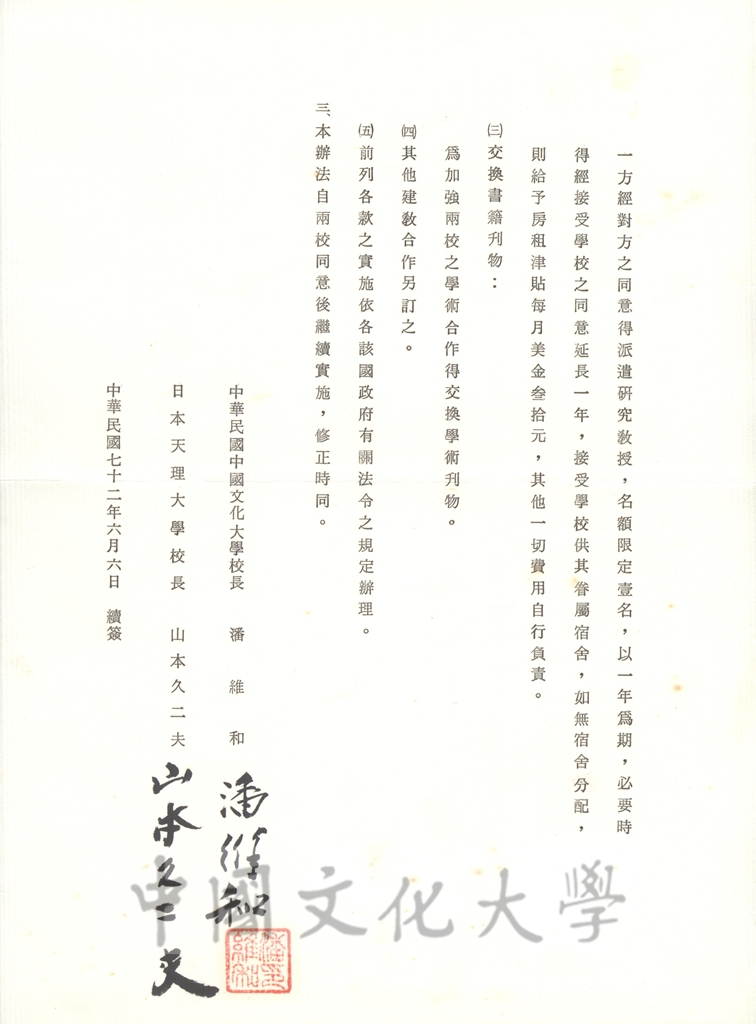 一方經對方之同意得派遣研究敎授，名額限定壹名，以一年爲期，必要時
得經接受學校之同意延長一年，接受學校供其眷屬宿舍，如無宿舍分配，
則給予房租津貼每月美金叁拾元，其他一切費用自行負責。
㈢交換書籍刋物：
爲加強兩校之學術合作得交換學術刋物。
㈣其他建敎合作另訂之。
㈤前列各款之實施依各該國政府有關法令之規定辦理。
三、本辦法自兩校同意後繼續實施，修正時同。
中華民國中國文化大學校長 潘維和
潘維和
潘維和印
日本天理大學校長 山本久二夫
山本久二夫
中華民國七十二年六月六日 續簽
中國文化大學